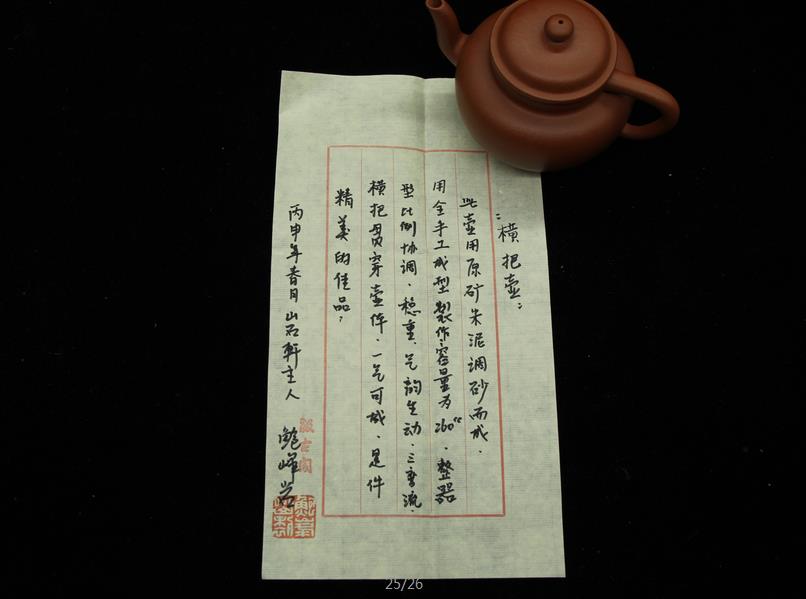 :横把壶:
此壶用原矿朱泥调砂而成.
用全手工成型製作.容量为260cc.整器
型比例协调.稳重.气韵生动.三弯流.
横把贯穿壶体.一气可成.是件
精美的佳品.
丙申年春月 山石軒主人
鲍峰岩
25/26